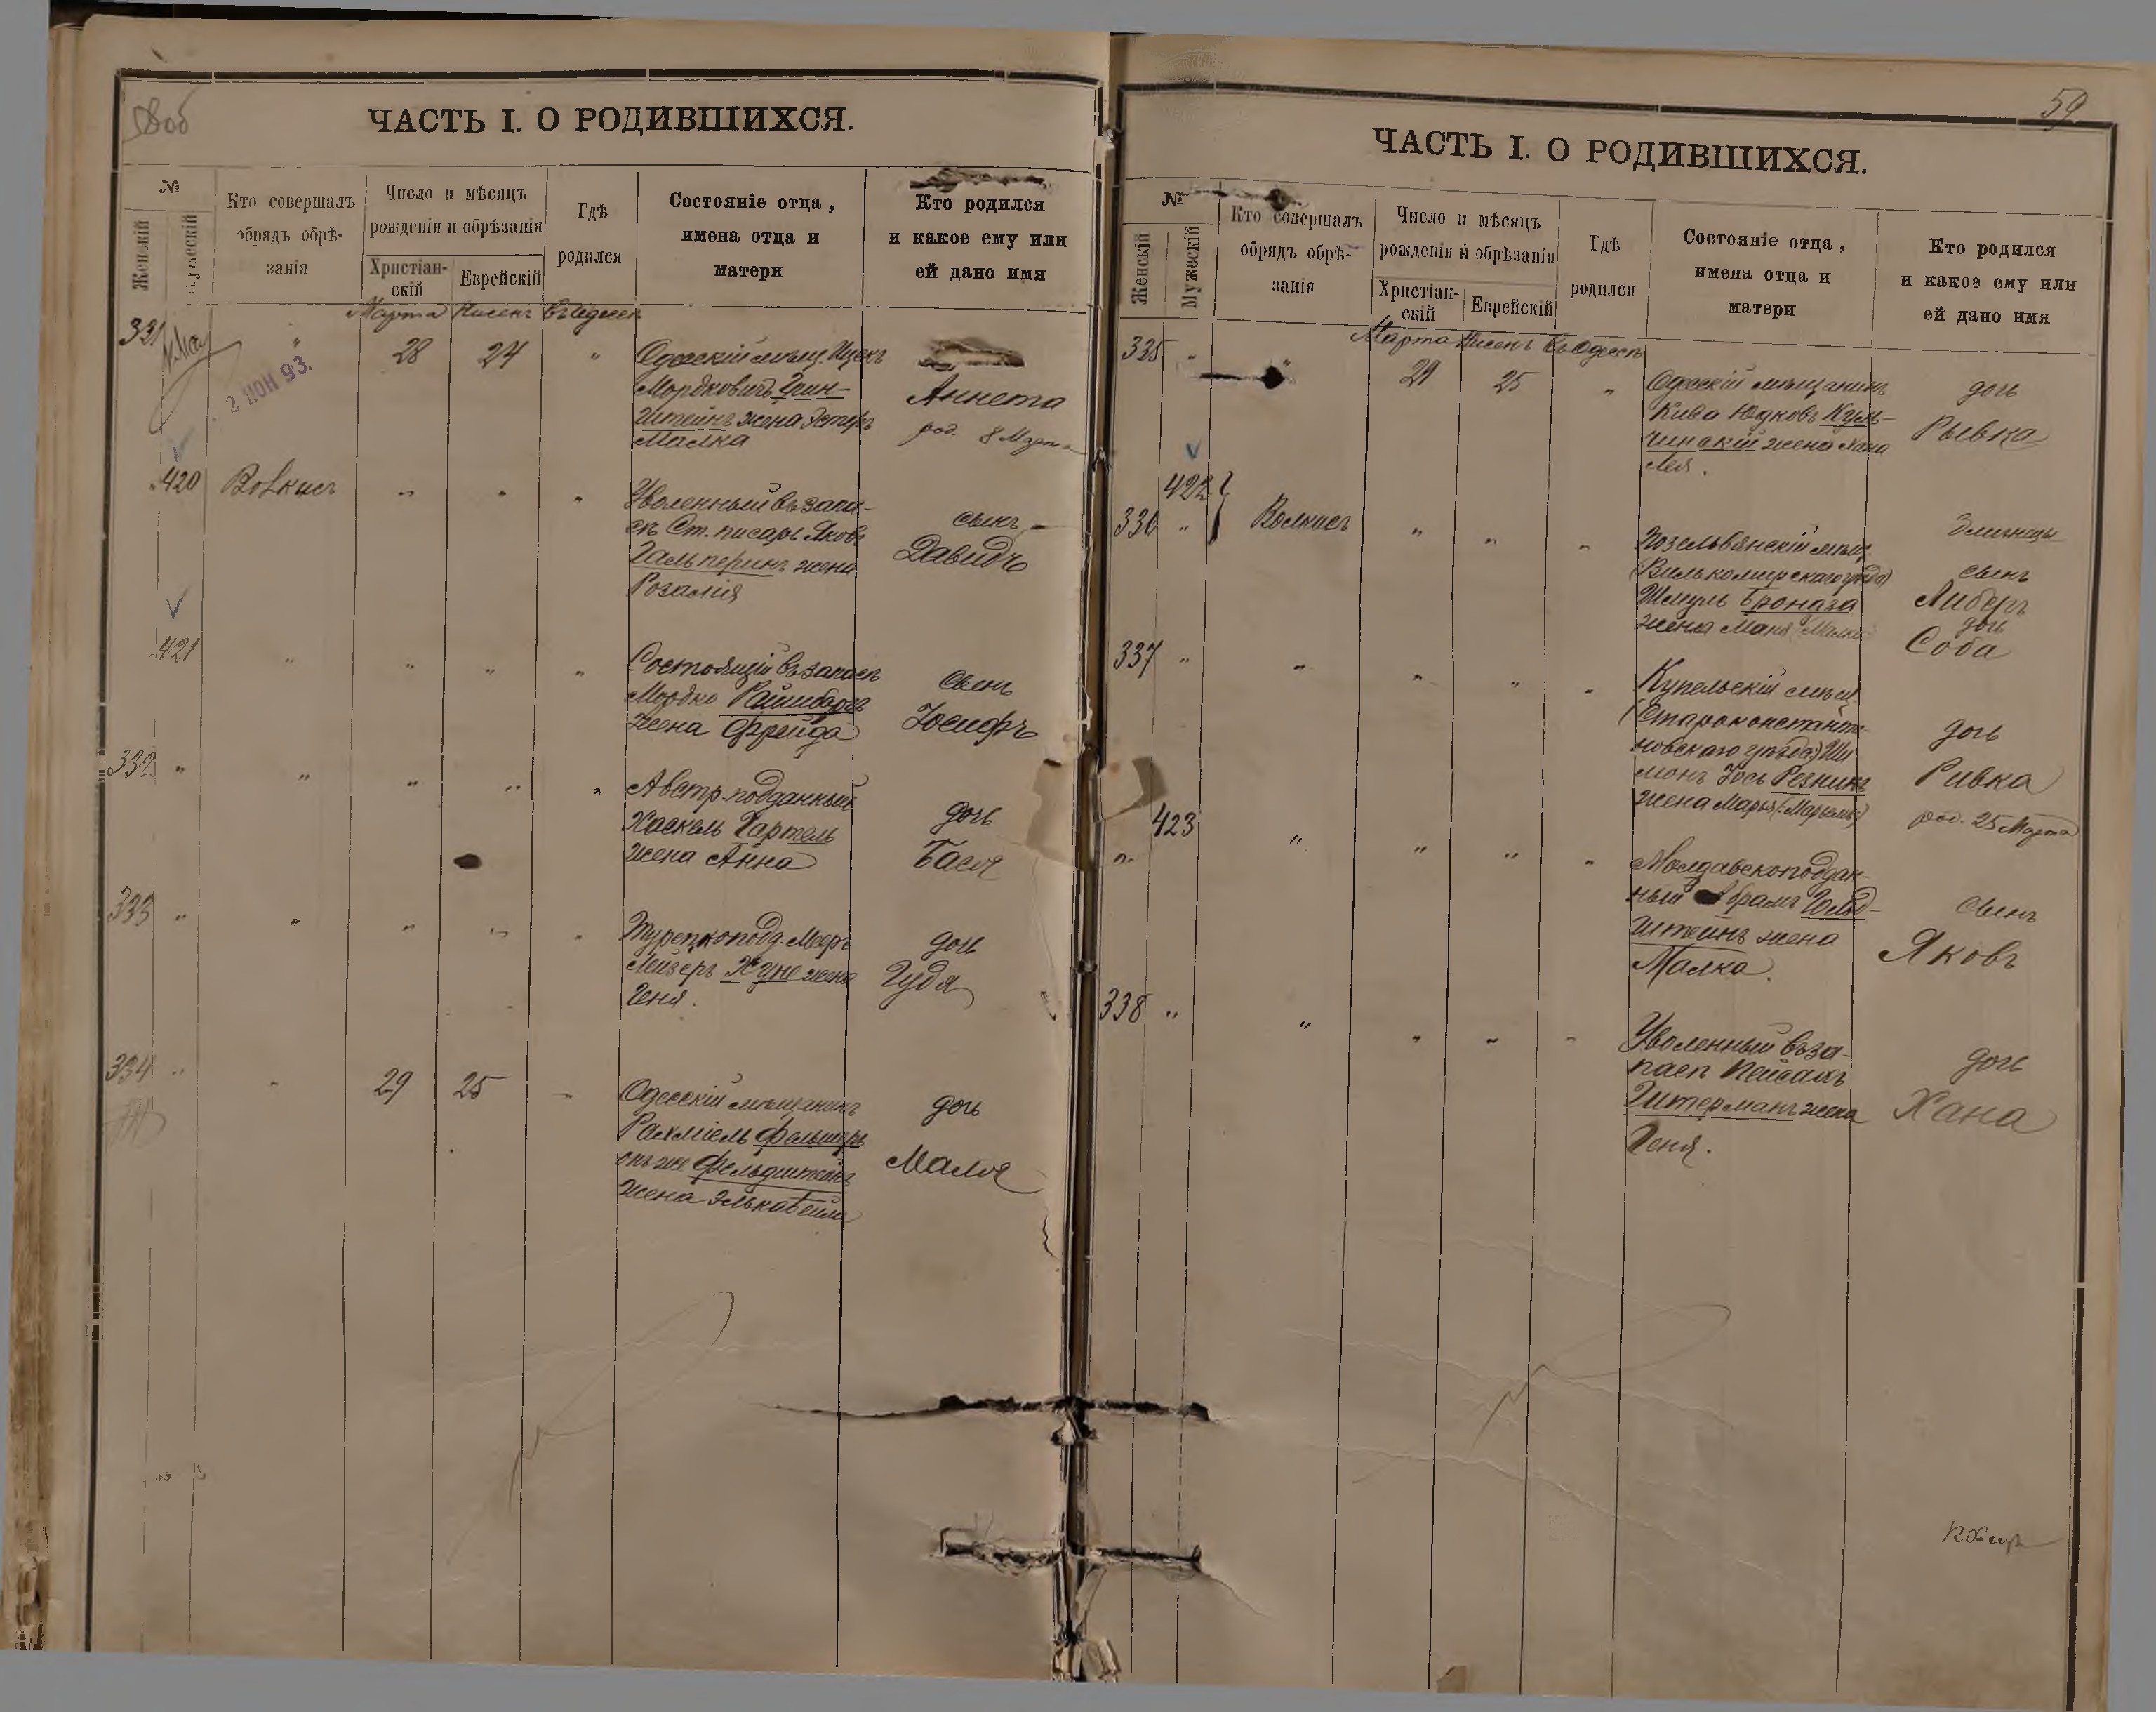 58об
ЧАСТЬ I. О РОДИВШИХСЯ.
№
Женскій
Мужескій
Кто совершалъ
обрядъ обрѣ-
занія
Число и мѣсяцъ
рожденія и обрѣзанія
Христіан-
скій
Еврейскій
Гдѣ
родился
Состояніе отца,
имена отца и
матери
Кто родился
и какое ему или
ей дано имя
Марта Нисенъ въ Одессѣ
331 " 28 24 "
2 ІЮН 93.
Одесскій мѣщ. Ицекъ
Мордковичъ Грин-
штейнъ жена Эстеръ
Малка
Аннета
род. 8 Марта
420 Волкисъ " " "
Уволенный въ запа-
съ Ст. писарь Яковъ
Гальперинъ жена
Розалія
сынъ
Давидъ
421 " " " "
Состоящій въ запасѣ
Мордко
жена Фрейда
сынъ
Іосифъ
332 " " " " "
Австр. подданный
Хаскель Гартель
жена Анна
дочь
Бася
333 " " " " "
Турецкопод. Мееръ
Лейзеръ Хуне жена
Геня.
дочь
Гудя
334 " " 29 25 "
Одесскій мѣщанинъ
Рахміель
онъ же Фельдштейнъ
жена Элька Бейла
дочь
Маля
59
ЧАСТЬ I. О РОДИВШИХСЯ.
№
Женскій
Мужескій
Кто совершалъ
обрядъ обрѣ-
занія
Число и мѣсяцъ
рожденія и обрѣзанія
Христіан-
скій
Еврейскій
Гдѣ
родился
Состояніе отца,
имена отца и
матери
Кто родился
и какое ему или
ей дано имя
Марта Нисенъ въ Одессѣ
335 " " 29 25 "
Одесскій мѣщанинъ
Кива Юдковъ Куль-
чинскій жена Хана
Лея.
дочь
Рывка
422
336 " Волкисъ " " "
мѣщ.
(Вилькомирскаго уѣзда)
Шмуль Броназа
жена Маня (Малка)
Близнецы
сынъ
Либеръ
дочь
Соба
337 " " " " "
Купельскій мѣщ.
(Староконстанти-
новскаго уѣзда) Ши
монъ Іось Резникъ
жена Марья (Марьямъ)
дочь
Ривка
род. 25 Марта
" 423 " " " "
Молдавскоподдан-
ный Абрамъ Гольд-
штейнъ жена
Малка.
сынъ
Яковъ
338 " " " " "
Уволенный въ за-
пасъ Пейсахъ
Гитерманъ жена
Геня.
дочь
Хана